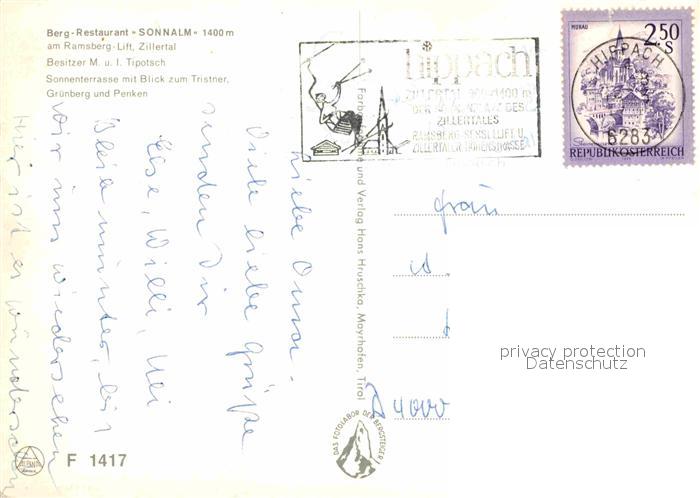 Berg-Restaurant »SONNALM« 1400 m
am Ramsberg-Lift, Zillertal
Besitzer M. u. I. Tipotsch
Sonnenterrasse mit Blick zum Tristner,
Grünberg und Penken
hippach
ZILLERTALES
RAMSBERG-SESSELLIFT U.
ZILLERTALER HÖHENSTRASSE
MURAU
2.50
S
HIPPACH
6283
REPUBLIK ÖSTERREICH
und Verlag Hans Hruschka, Mayrhofen, Tirol
Liebe Oma.
Viele liebe Grüße
senden Dir
Else, Willi, Uli
Bleib munter, bis
wir uns wiedersehen
Hier ist es wunderschön
Frau
4000
privacy protection
Datenschutz
DAS FOTOLABOR DER BERGSTEIGER
F 1417